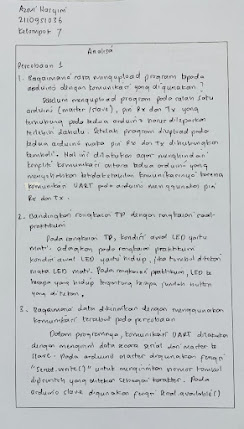 Azmi Nasqini
2110951026
Kelompok 7
Analisa
Percobaan 1
1. Bagaimana cara mengupload program kepada
arduino dengan komunikasi yang digunakan?
Sebelum mengupload program pada salah satu
arduino (master/slave), pin Rx dan Tx yang
terhubung pada kedua arduino harus dilepaskan
terlebih dahulu. Setelah program diupload pada
kedua arduino maka pin Rx dan Tx dihubungkan
kembali. Hal ini dilakukan agar menghindari
komunikasi antara kedua arduino yang
menyebabkan komunikasinya karena
komunikasi UART pada arduino menggunakan pin
Rx dan Tx.
2. Bandingkan rangkaian TP dengan rangkaian saat
praktikum
Pada rangkaian TP, kondisi awal LED yaitu
mati. Sedangkan pada rangkaian praktikum
kondisi awal LED yaitu hidup, jika tombol ditekan
maka LED mati. Pada rangkaian praktikum, LED ke
berapa yang hidup tergantung berapa jumlah button
yang ditekan.
3. Bagaimana data dikirimkan dengan menggunakan
komunikasi tersebut pada percobaan
Dalam programnya, komunikasi UART dilakukan
dengan mengirim data secara serial dari master ke
slave. Pada arduino master digunakan fungsi
"Serial.write()" untuk mengirimkan nomor tombol
yang ditekan sebagai karakter. Pada
arduino slave digunakan fungsi Serial.available()